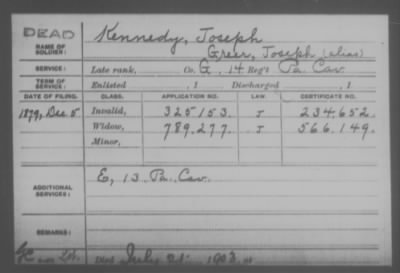 DEAD
Kennedy, Joseph
NAME OF SOLDIER:
Greer, Joseph (alias)
SERVICE: Late rank, Co. G, 14 Reg't Pa. Cav.
TERM OF SERVICE: Enlisted , 1 Discharged , 1
DATE OF FILING. CLASS. APPLICATION NO. LAW. CERTIFICATE NO.
1879, Dec. 5 Invalid, 325153. J 234.652.
Widow, 789.277. J 566.149.
Minor,
ADDITIONAL SERVICES: E, 13 Pa. Cav.
REMARKS:
Died July 21 1903